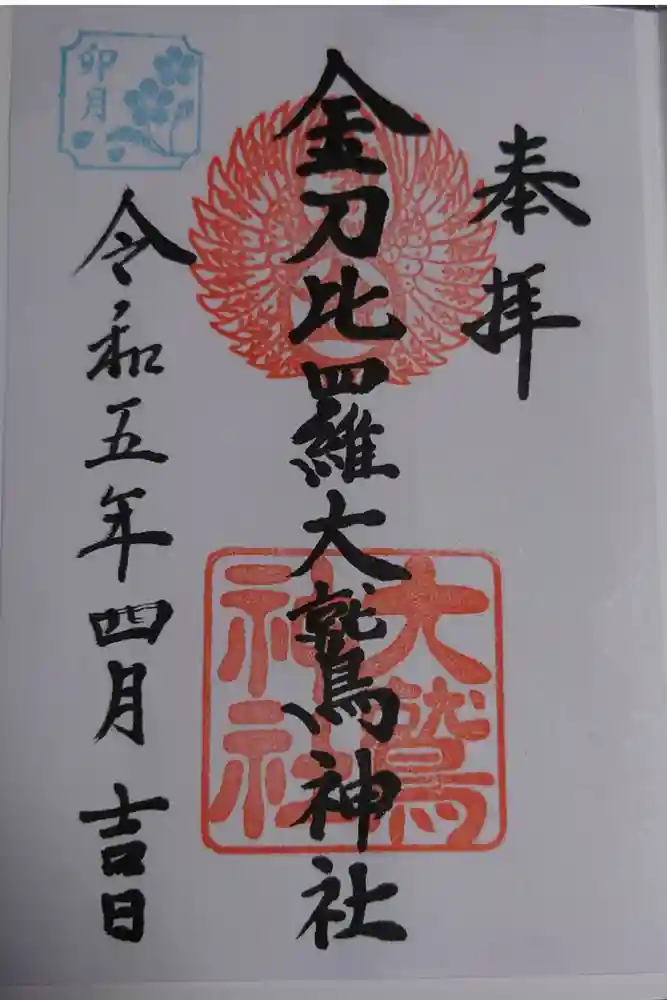 奉拝
金刀比羅大鷲神社
大鷲
神社
卯月
令和五年四月吉日